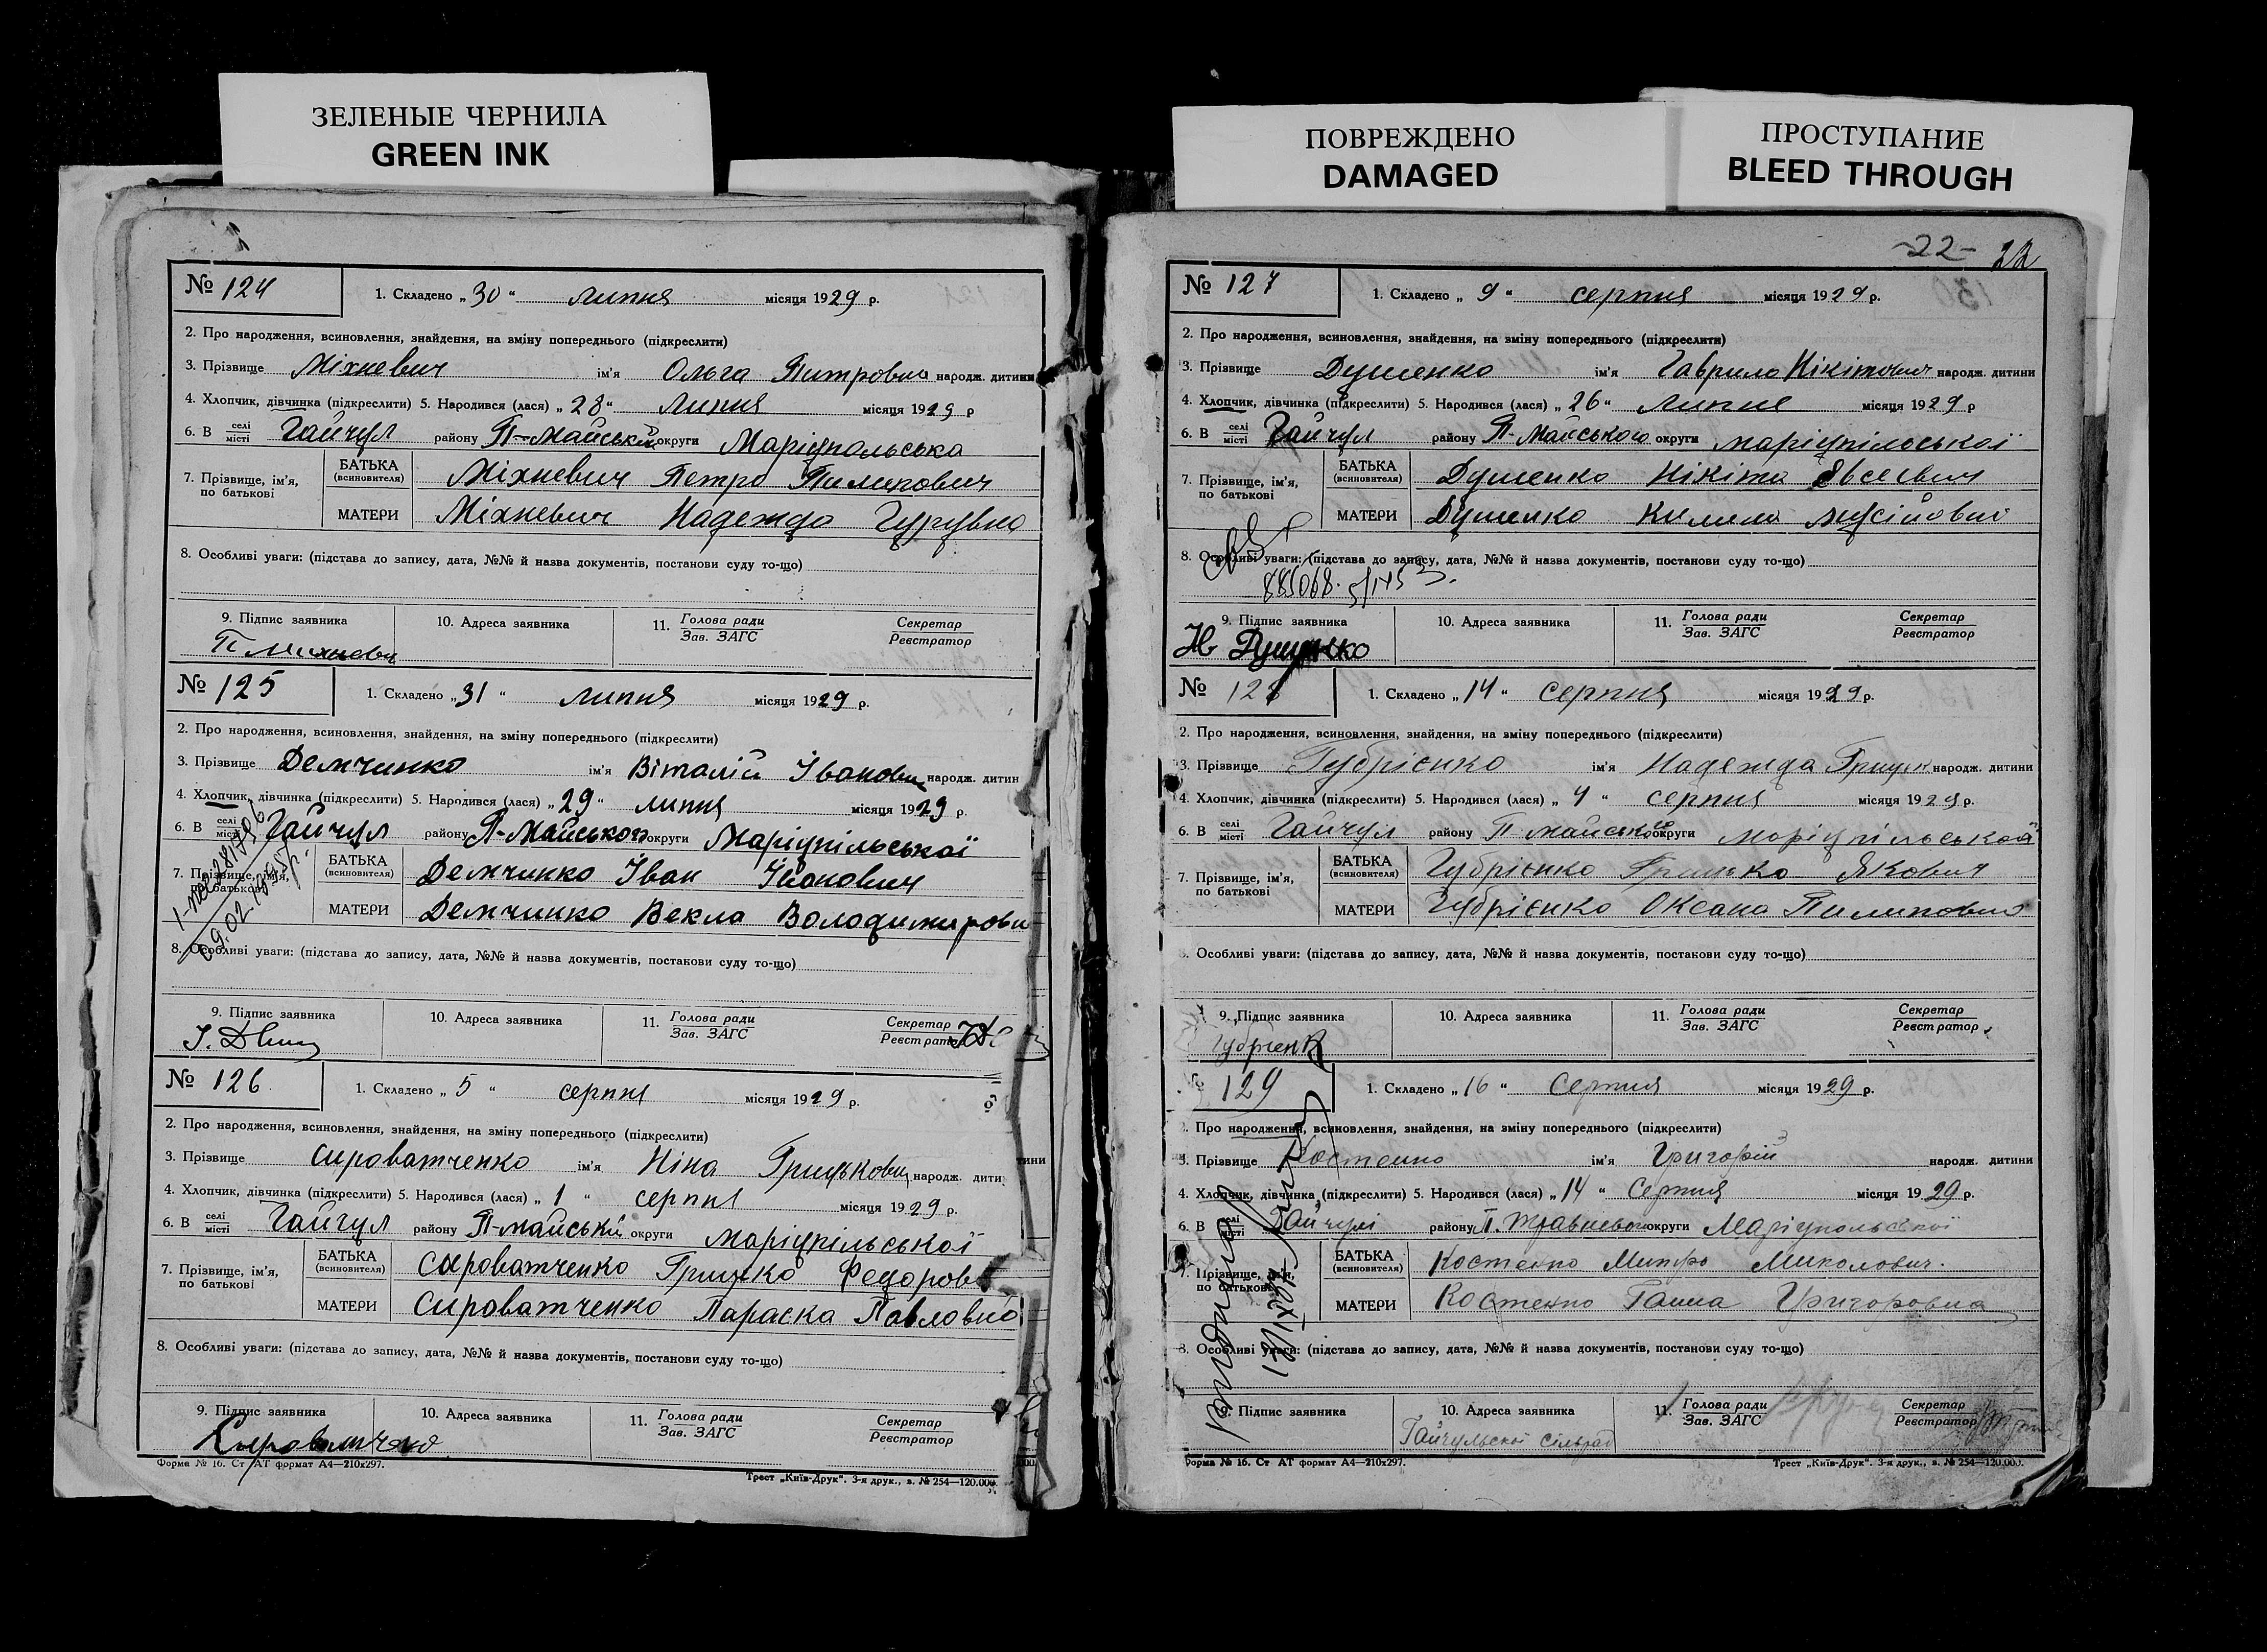 ЗЕЛЕНЫЕ ЧЕРНИЛА
GREEN INK
ПОВРЕЖДЕНО
DAMAGED
ПРОСТУПАНИЕ
BLEED THROUGH
№ 124 1. Складено „ 30 “ липня місяця 1929 р.
2. Про народження, всиновлення, знайдення, на зміну попереднього (підкреслити)
3. Прізвище Міхневич ім'я Ольга Питровна народж. дитини
4. Хлопчик, дівчинка (підкреслити) 5. Народився (лася) „ 28 “ липня місяця 1929 р
6. В селі місті Гайчул району П-Майський округи Маріупольська
7. Прізвище, ім'я, по батькові БАТЬКА (всиновителя) Міхневич Петро Пилипович
МАТЕРИ Міхневич Надежда Гурувна
8. Особливі уваги: (підстава до запису, дата, №№ й назва документів, постанови суду то-що)
9. Підпис заявника 10. Адреса заявника 11. Голова ради Зав. ЗАГС Секретар Реєстратор
П Михневич
№ 125 1. Складено „ 31 “ липня місяця 1929 р.
2. Про народження, всиновлення, знайдення, на зміну попереднього (підкреслити)
3. Прізвище Демчинко ім'я Віталій Іванович народж. дитин
4. Хлопчик, дівчинка (підкреслити) 5. Народився (лася) „ 29 “ липня місяця 1929 р.
6. В селі місті Гайчул району П-Майського округи Маріупільської
7. Прізвище, ім'я, по батькові БАТЬКА (всиновителя) Демчинко Іван Іванович
МАТЕРИ Демчинко Векла Володимировн
8. Особливі уваги: (підстава до запису, дата, №№ й назва документів, постакови суду то-що)
9. Підпис заявника 10. Адреса заявника 11. Голова ради Зав. ЗАГС Секретар Реєстратор
№ 126 1. Складено „ 5 “ серпня місяця 1929 р.
2. Про народження, всиновлення, знайдення, на зміну попереднього (підкреслити)
3. Прізвище Сироватченко ім'я Ніна Грицьковн народж. дити
4. Хлопчик, дівчинка (підкреслити) 5. Народився (лася) „ 1 “ серпня місяця 1929 р.
6. В селі місті Гайчул району П-Майській округи Маріупільської
7. Прізвище, ім'я, по батькові БАТЬКА (всиновителя) Сироватченко Грицько Федоров
МАТЕРИ Сироватченко Параска Павловно
8. Особливі уваги: (підстава до запису, дата, №№ й назва документів, постанови суду то-що)
9. Підпис заявника 10. Адреса заявника 11. Голова ради Зав. ЗАГС Секретар Реєстратор
Сироватченко
Форма № 16. Ст АТ формат А4—210х297.
Трест „Київ-Друк“. 3-я друк., з. № 254—120.000.
-22- 22
№ 127 1. Складено „ 9 “ серпня місяця 1929 р.
2. Про народження, всиновлення, знайдення, на зміну попереднього (підкреслити)
3. Прізвище Душенко ім'я Гаврило Нікітович народж. дитини
4. Хлопчик, дівчинка (підкреслити) 5. Народився (лася) „ 26 “ липня місяця 1929 р
6. В селі місті Гайчул району П-Майського округи маріупільської
7. Прізвище, ім'я, по батькові БАТЬКА (всиновителя) Душенко Нікіта Явсеєвич
МАТЕРИ Душенко Килина Мусійовна
8. Особливі уваги: (підстава до запису, дата, №№ й назва документів, постанови суду то-що)
9. Підпис заявника 10. Адреса заявника 11. Голова ради Зав. ЗАГС Секретар Реєстратор
Н Душенко
№ 128 1. Складено „ 14 “ серпня місяця 1929 р.
2. Про народження, всиновлення, знайдення, на зміну попереднього (підкреслити)
3. Прізвище Губрієнко ім'я Надежда Грицьк народж. дитини
4. Хлопчик, дівчинка (підкреслити) 5. Народився (лася) „ 4 “ серпня місяця 1929 р.
6. В селі місті Гайчул району П-майського округи Маріупільської
7. Прізвище, ім'я, по батькові БАТЬКА (всиновителя) Губрієнко Грицько Якович
МАТЕРИ Губрієнко Оксана Пилиповна
8. Особливі уваги: (підстава до запису, дата, №№ й назва документів, постакови суду то-що)
9. Підпис заявника 10. Адреса заявника 11. Голова ради Зав. ЗАГС Секретар Реєстратор
Губрієнк
№ 129 1. Складено „ 16 “ Серпня місяця 1929 р.
2. Про народження, всиновлення, знайдення, на зміну попереднього (підкреслити)
3. Прізвище Костенко ім'я Григорій народж. дитини
4. Хлопчик, дівчинка (підкреслити) 5. Народився (лася) „ 14 “ Серпня місяця 1929 р.
6. В селі місті Гайчулі району П. Травневого округи Маріупольської
7. Прізвище, ім'я, по батькові БАТЬКА (всиновителя) Костенко Митро Миколович.
МАТЕРИ Костенко Ганна Григоровна
8. Особливі уваги: (підстава до запису, дата, №№ й назва документів, постанови суду то-що)
9. Підпис заявника 10. Адреса заявника 11. Голова ради Зав. ЗАГС Секретар Реєстратор
Гайчульскої сільрад
Форма № 16. Ст АТ формат А4—210х297.
Трест „Київ-Друк“. 3-я друк., з. № 254—120.000.